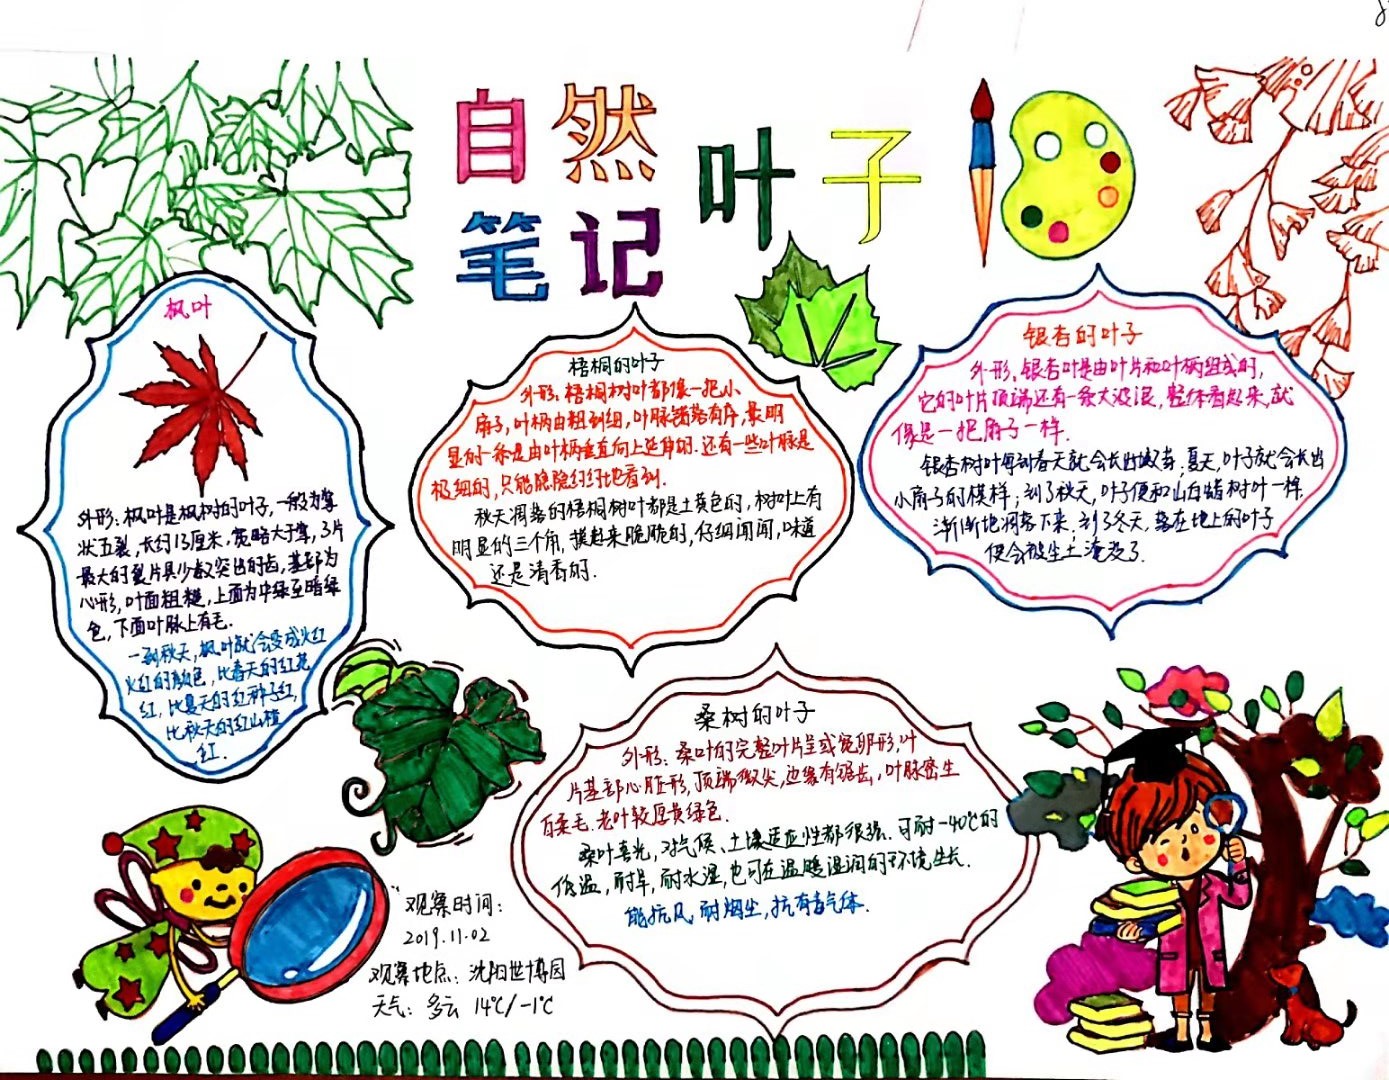 自然
笔记
叶子
枫叶
外形：枫叶是枫树的叶子，一般为掌
状五裂，长约13厘米，宽略大于掌，3片
最大的裂片具少数突出的齿，基部为
心形，叶面粗糙，上面为中绿至暗绿
色，下面叶脉上有毛．
一到秋天，枫叶就会变成火红
火红的颜色，比春天的红花
红，比夏天的红种子红，
比秋天的红山楂
红．
梧桐的叶子
外形：梧桐树叶都像一把小
扇子，叶柄由粗到细，叶脉错落有序，最明
显的一条是由叶柄垂直向上延伸的．还有一些叶脉是
极细的，只能隐隐约约地看到．
秋天凋落的梧桐树叶都是土黄色的，树叶上有
明显的三个角，摸起来脆脆的，仔细闻闻，味道
还是清香的．
银杏的叶子
外形：银杏叶是由叶片和叶柄组成的，
它的叶片顶端还有一条大波浪，整体看起来，就
像是一把扇子一样．
银杏树叶每到春天就会长出嫩芽．夏天，叶子就会长出
小扇子的模样；到了秋天，叶子便和山白蜡树叶一样
渐渐地凋落下来．到了冬天，落在地上的叶子
便会被尘土淹没了．
桑树的叶子
外形：桑叶的完整叶片呈或宽卵形，叶
片基部心脏形，顶端微尖，边缘有锯齿，叶脉密生
白柔毛．老叶较厚黄绿色．
桑叶喜光，对气候、土壤适应性都很强．可耐-40℃的
低温，耐旱，耐水湿，也可在温暖湿润的环境生长．
能抗风，耐烟尘，抗有毒气体．
观察时间：
2019.11.02
观察地点：沈阳世博园
天气：多云 14℃/-1℃